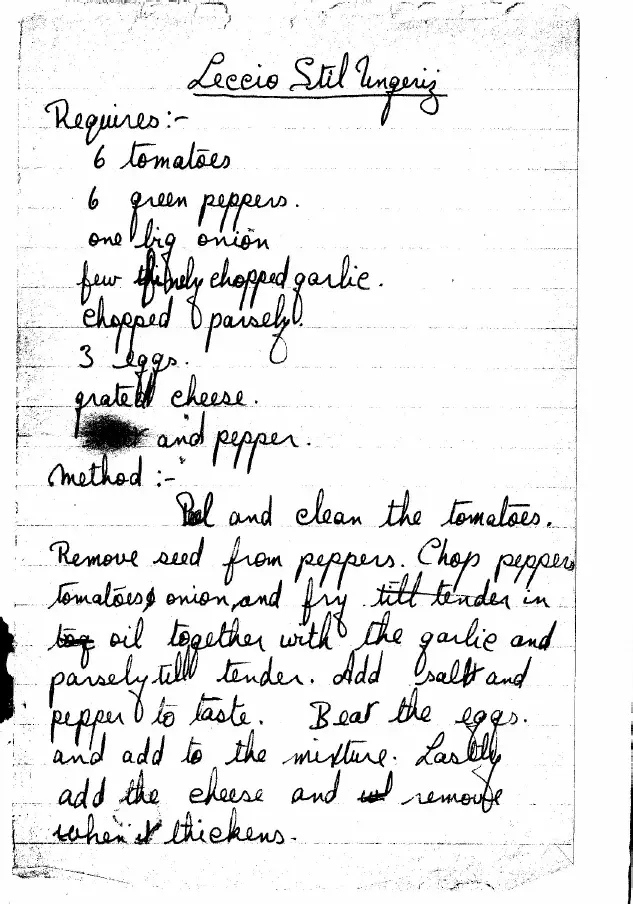 Leccio Stil Ungeriz
Requires:-
6 tomatoes
6 green peppers.
one big onion
few finely chopped garlic.
chopped parsely.
3 eggs.
grated cheese.
and pepper.
Method :-
Peel and clean the tomatoes.
Remove seed from peppers. Chop peppers
tomatoes, onion, and fry till tender in
oil together with the garlic and
parsely till tender. Add salt and
pepper to taste. Beat the eggs.
and add to the mixture. Lastly
add the cheese and remove
when it thickens.